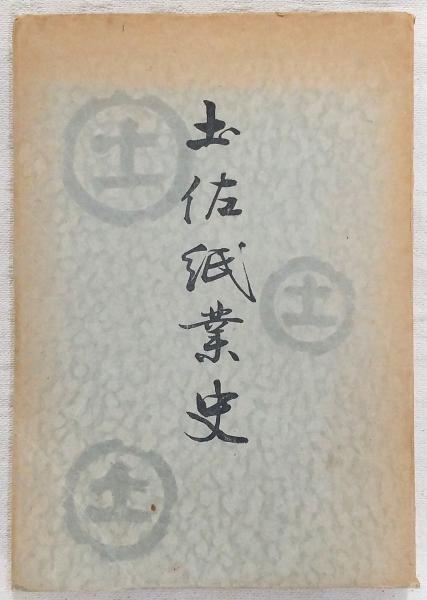 土佐紙業史
土
土
土